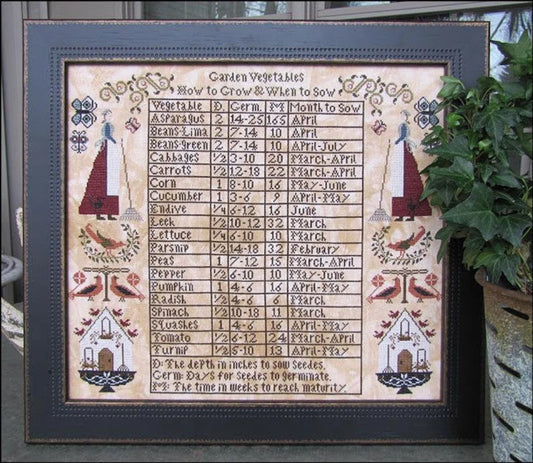 Garden Vegetables
How to Grow & When to Sow
Vegetable D. Germ. M: Month to Sow
Asparagus 2 14-25 165 April
Beans-Lima 2 7-14 10 April
Beans-green 2 7-14 10 April-July
Cabbages ½ 3-10 20 March-April
Carrots ½ 12-18 22 March-April
Corn 1 8-10 16 May-June
Cucumber 1 3-6 9 April-May
Endive ¼ 6-12 16 June
Leek ½ 10-12 32 March
Lettuce ¼ 6-10 10 March
Parsnip ½ 14-18 32 February
Peas 1 7-12 15 March-April
Pepper ½ 6-10 10 May-June
Pumpkin 1 4-6 16 April-May
Radish ½ 4-6 6 March
Spinach ½ 10-18 11 March
Squashes 1 4-6 16 April-May
Tomato ½ 6-12 24 March-April
Turnip ½ 5-10 13 April-May
D: The depth in inches to sow seedes.
Germ: Days for Seedes to germinate.
M: The time in weeks to reach maturity.